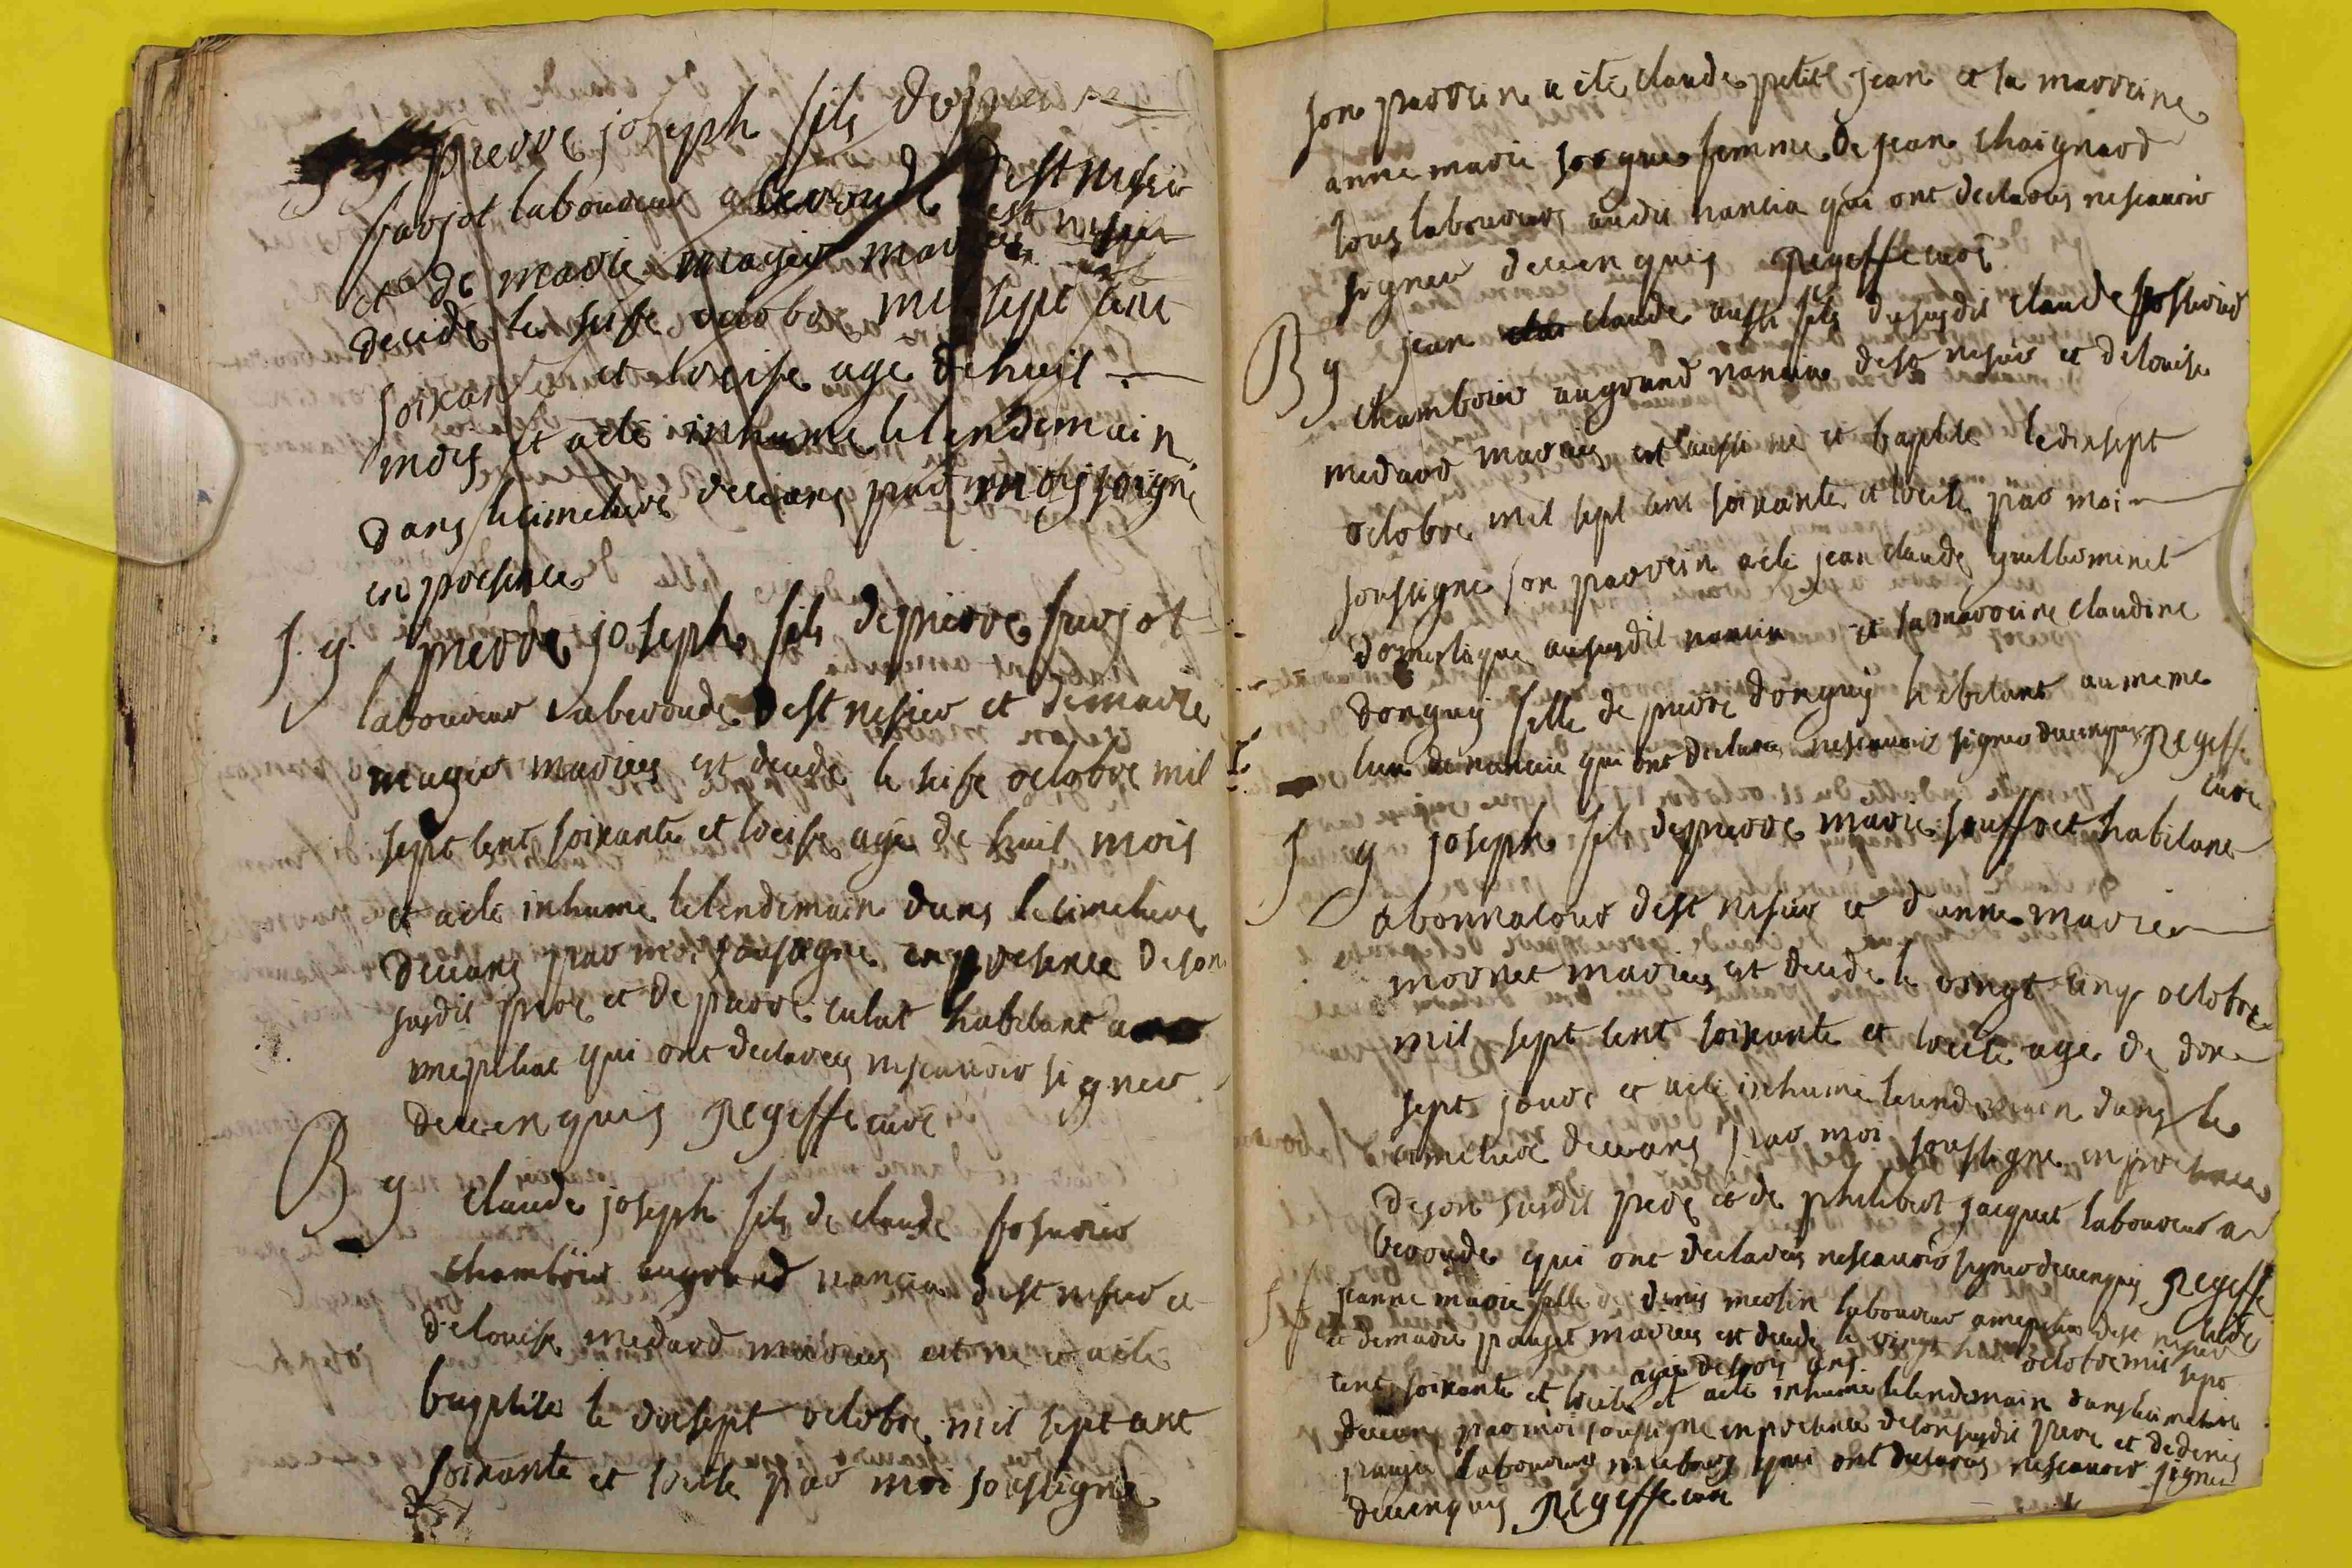 pierre joseph fils de pierre
farjot laboureur a beroude dest nisier
et de marie magir mariez est
decide le seise octobre mil sept cent
soixante et treise agé de huit
mois et aeté inhumé le lendemain
dans le cimetiere deceans par moi soigné
en presence
S. g. pierre joseph fils de pierre farjot
laboureur aberoude dest nisier et de marie
magir mariez est decide le seise octobre mil
sept cent soixante et treise agé de huit mois
et aeté inhumé le lendemain dans le cimetiere
deceans par moi sousigné en presence de son
susdit pere et de pierre culat habitant a
mepiliat qui ont declarez nescavoir signer
dece enquis Regeffe curé
B g Claude joseph fils de claude
chambrier augrand nancin dest nisier et
delouise medard mariez est né et aeté
baptisé le dixsept octobre mil sept cent
soixante et treise par moi sousigné
son parrein a eté claude petit jean et sa marreine
anne marie femme de jean chaignard
tous laboureurs audit nancin qui ont declarez nescavoir
signer dece enquis Regeffe curé
B g jean claude aussi fils dususdit claude
chambrier augrand nancin dest nisier et delouise
medard mariez est aussi né et baptisé ledixsept
octobre mil sept cent soixante et treise par moi
sousigné son parrein aeté jean claude guilleminet
domestique ausudit nancin et sa marreine claudine
donguy fille de pierre donguy habitant aumeme
lieu de nancin qui ont declarez nescavoir signer dece enquis Regeffe
curé
S g joseph fils de pierre marie habitant
abonnacour dest nisier et danne marie
mornet mariez est decidé le vingt cinq octobre
mil sept cent soixante et treise agé de dix
sept jours et aeté inhumé lelendemain dans le
cimetiere deceans par moi sousigné en presence
deson susdit pere et de philibert jacquet laboureur a
beroude qui ont declarez nescavoir signer dece enquis Regeffe
curé
S f jeanne marie fille de denis merlin laboureur dest nisier
et demarie pauget mariez est decidé le vingt huit octobre mil sept
cent soixante et treise agée detrois ans et aeté inhumé lelendemain dans le cimetiere
deceans par moi sousigné en presence deson susdit pere et dedenis
pauget laboureur qui ont declarez nescavoir signer
dece enquis Regeffe curé